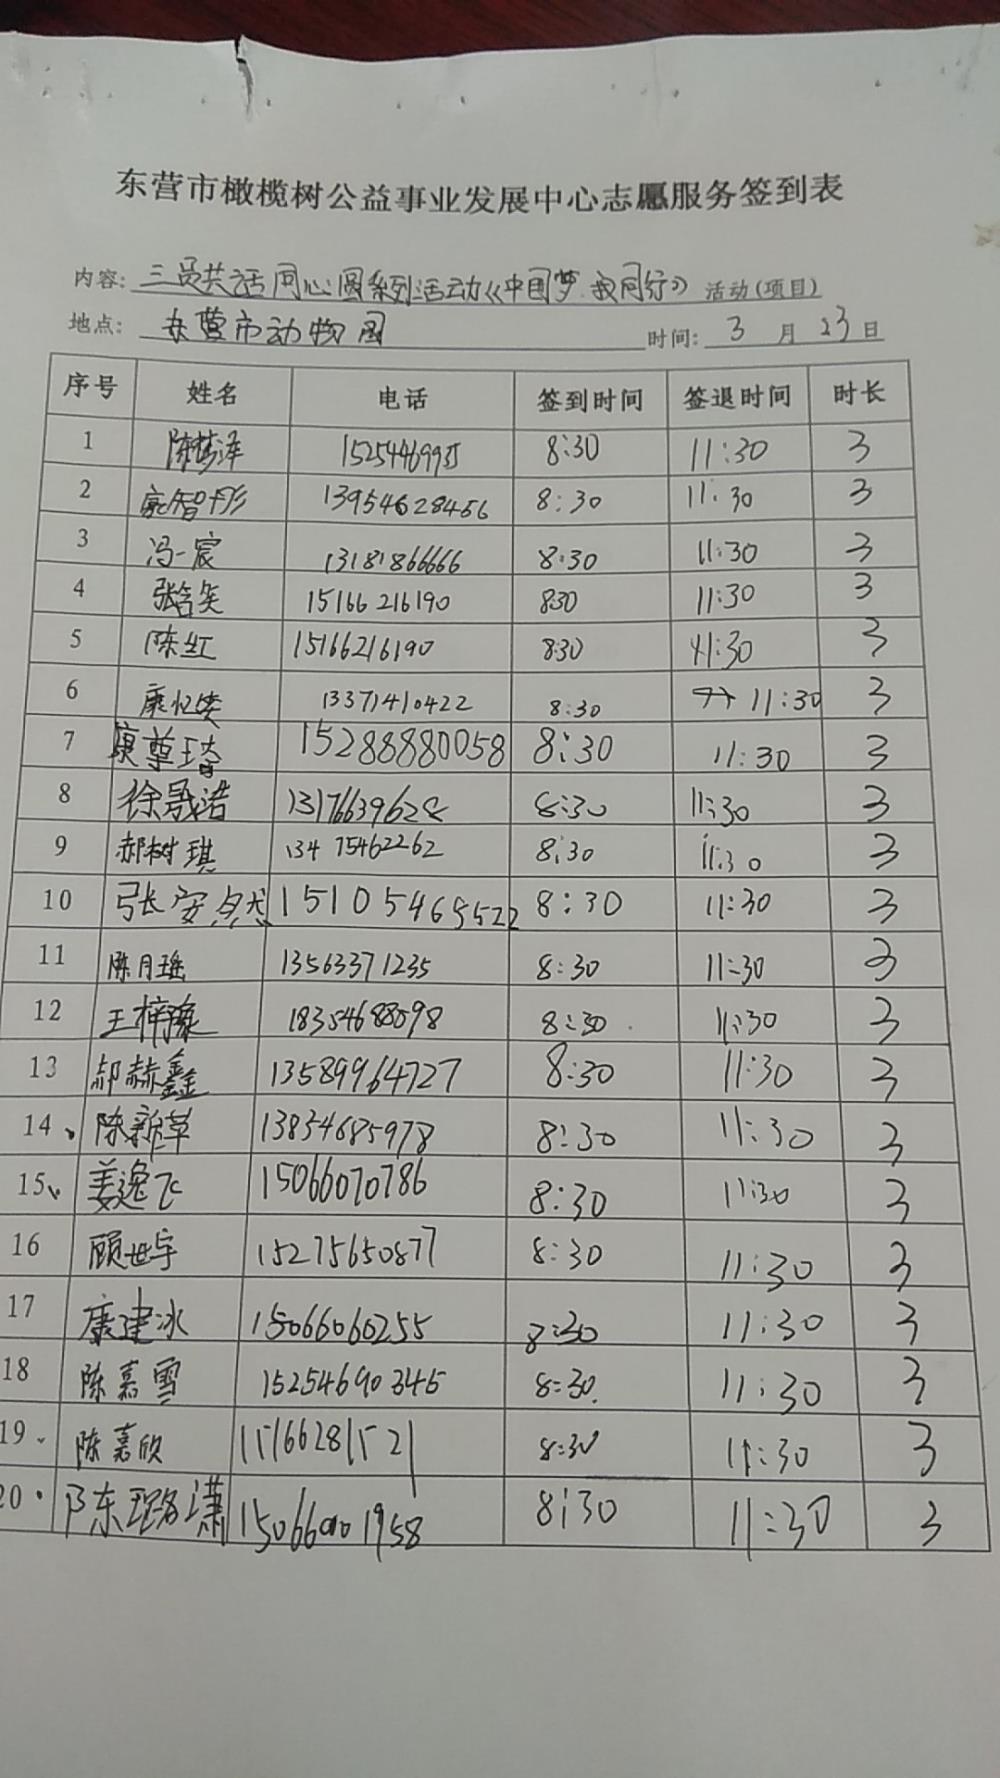 东营市橄榄树公益事业发展中心志愿服务签到表
内容: 三员共话同心圆系列活动《中国梦.我同行》 活动(项目)
地点: 东营市动物园 时间: 3 月 23 日
序号 姓名 电话 签到时间 签退时间 时长
1 陈梦泽 8:30 11:30 3
2 智彤 13954628466 8:30 11:30 3
3 冯一宸 13181866666 8:30 11:30 3
4 张含笑 15166216190 830 11:30 3
5 陈红 15166216190 8:30 11:30 3
6 康 13371410422 8:30 11:30 3
7 康尊 15288880058 8:30 11:30 3
8 徐晟浩 13176639628 8:30 11:30 3
9 郝树琪 13475462262 8:30 11:30 3
10 张安然 15105465522 8:30 11:30 3
11 陈月瑶 13563371235 8:30 11:30 3
12 王梓豫 18354688098 8:30 11:30 3
13 郝赫鑫 13589964727 8:30 11:30 3
14 陈新草 13834685978 8:30 11:30 3
15 姜逸飞 15066070786 8:30 11:30 3
16 顾世宇 15275650877 8:30 11:30 3
17 康建冰 15066060255 8:30 11:30 3
18 陈嘉雪 15254690345 8:30 11:30 3
19 陈嘉欣 15166281521 8:30 11:30 3
20 陈璐潇 8:30 11:30 3